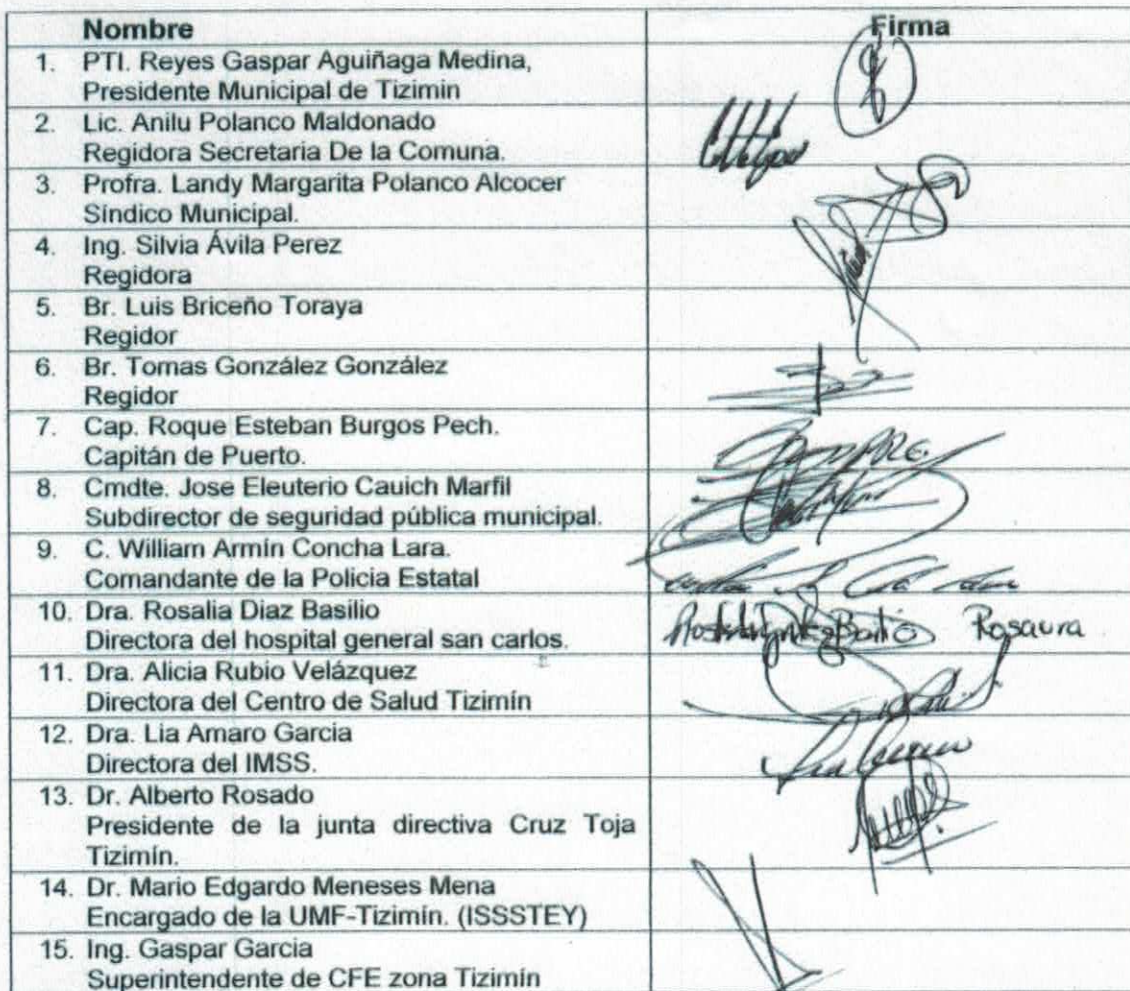 Nombre Firma
1. PTI. Reyes Gaspar Aguiñaga Medina,
Presidente Municipal de Tizimin
2. Lic. Anilu Polanco Maldonado
Regidora Secretaria De la Comuna.
3. Profra. Landy Margarita Polanco Alcocer
Síndico Municipal.
4. Ing. Silvia Ávila Perez
Regidora
5. Br. Luis Briceño Toraya
Regidor
6. Br. Tomas González González
Regidor
7. Cap. Roque Esteban Burgos Pech.
Capitán de Puerto.
8. Cmdte. Jose Eleuterio Cauich Marfil
Subdirector de seguridad pública municipal.
9. C. William Armín Concha Lara.
Comandante de la Policia Estatal
10. Dra. Rosalia Diaz Basilio
Directora del hospital general san carlos.
Rosaura
11. Dra. Alicia Rubio Velázquez
Directora del Centro de Salud Tizimín
12. Dra. Lia Amaro Garcia
Directora del IMSS.
13. Dr. Alberto Rosado
Presidente de la junta directiva Cruz Toja
Tizimín.
14. Dr. Mario Edgardo Meneses Mena
Encargado de la UMF-Tizimín. (ISSSTEY)
15. Ing. Gaspar Garcia
Superintendente de CFE zona Tizimín